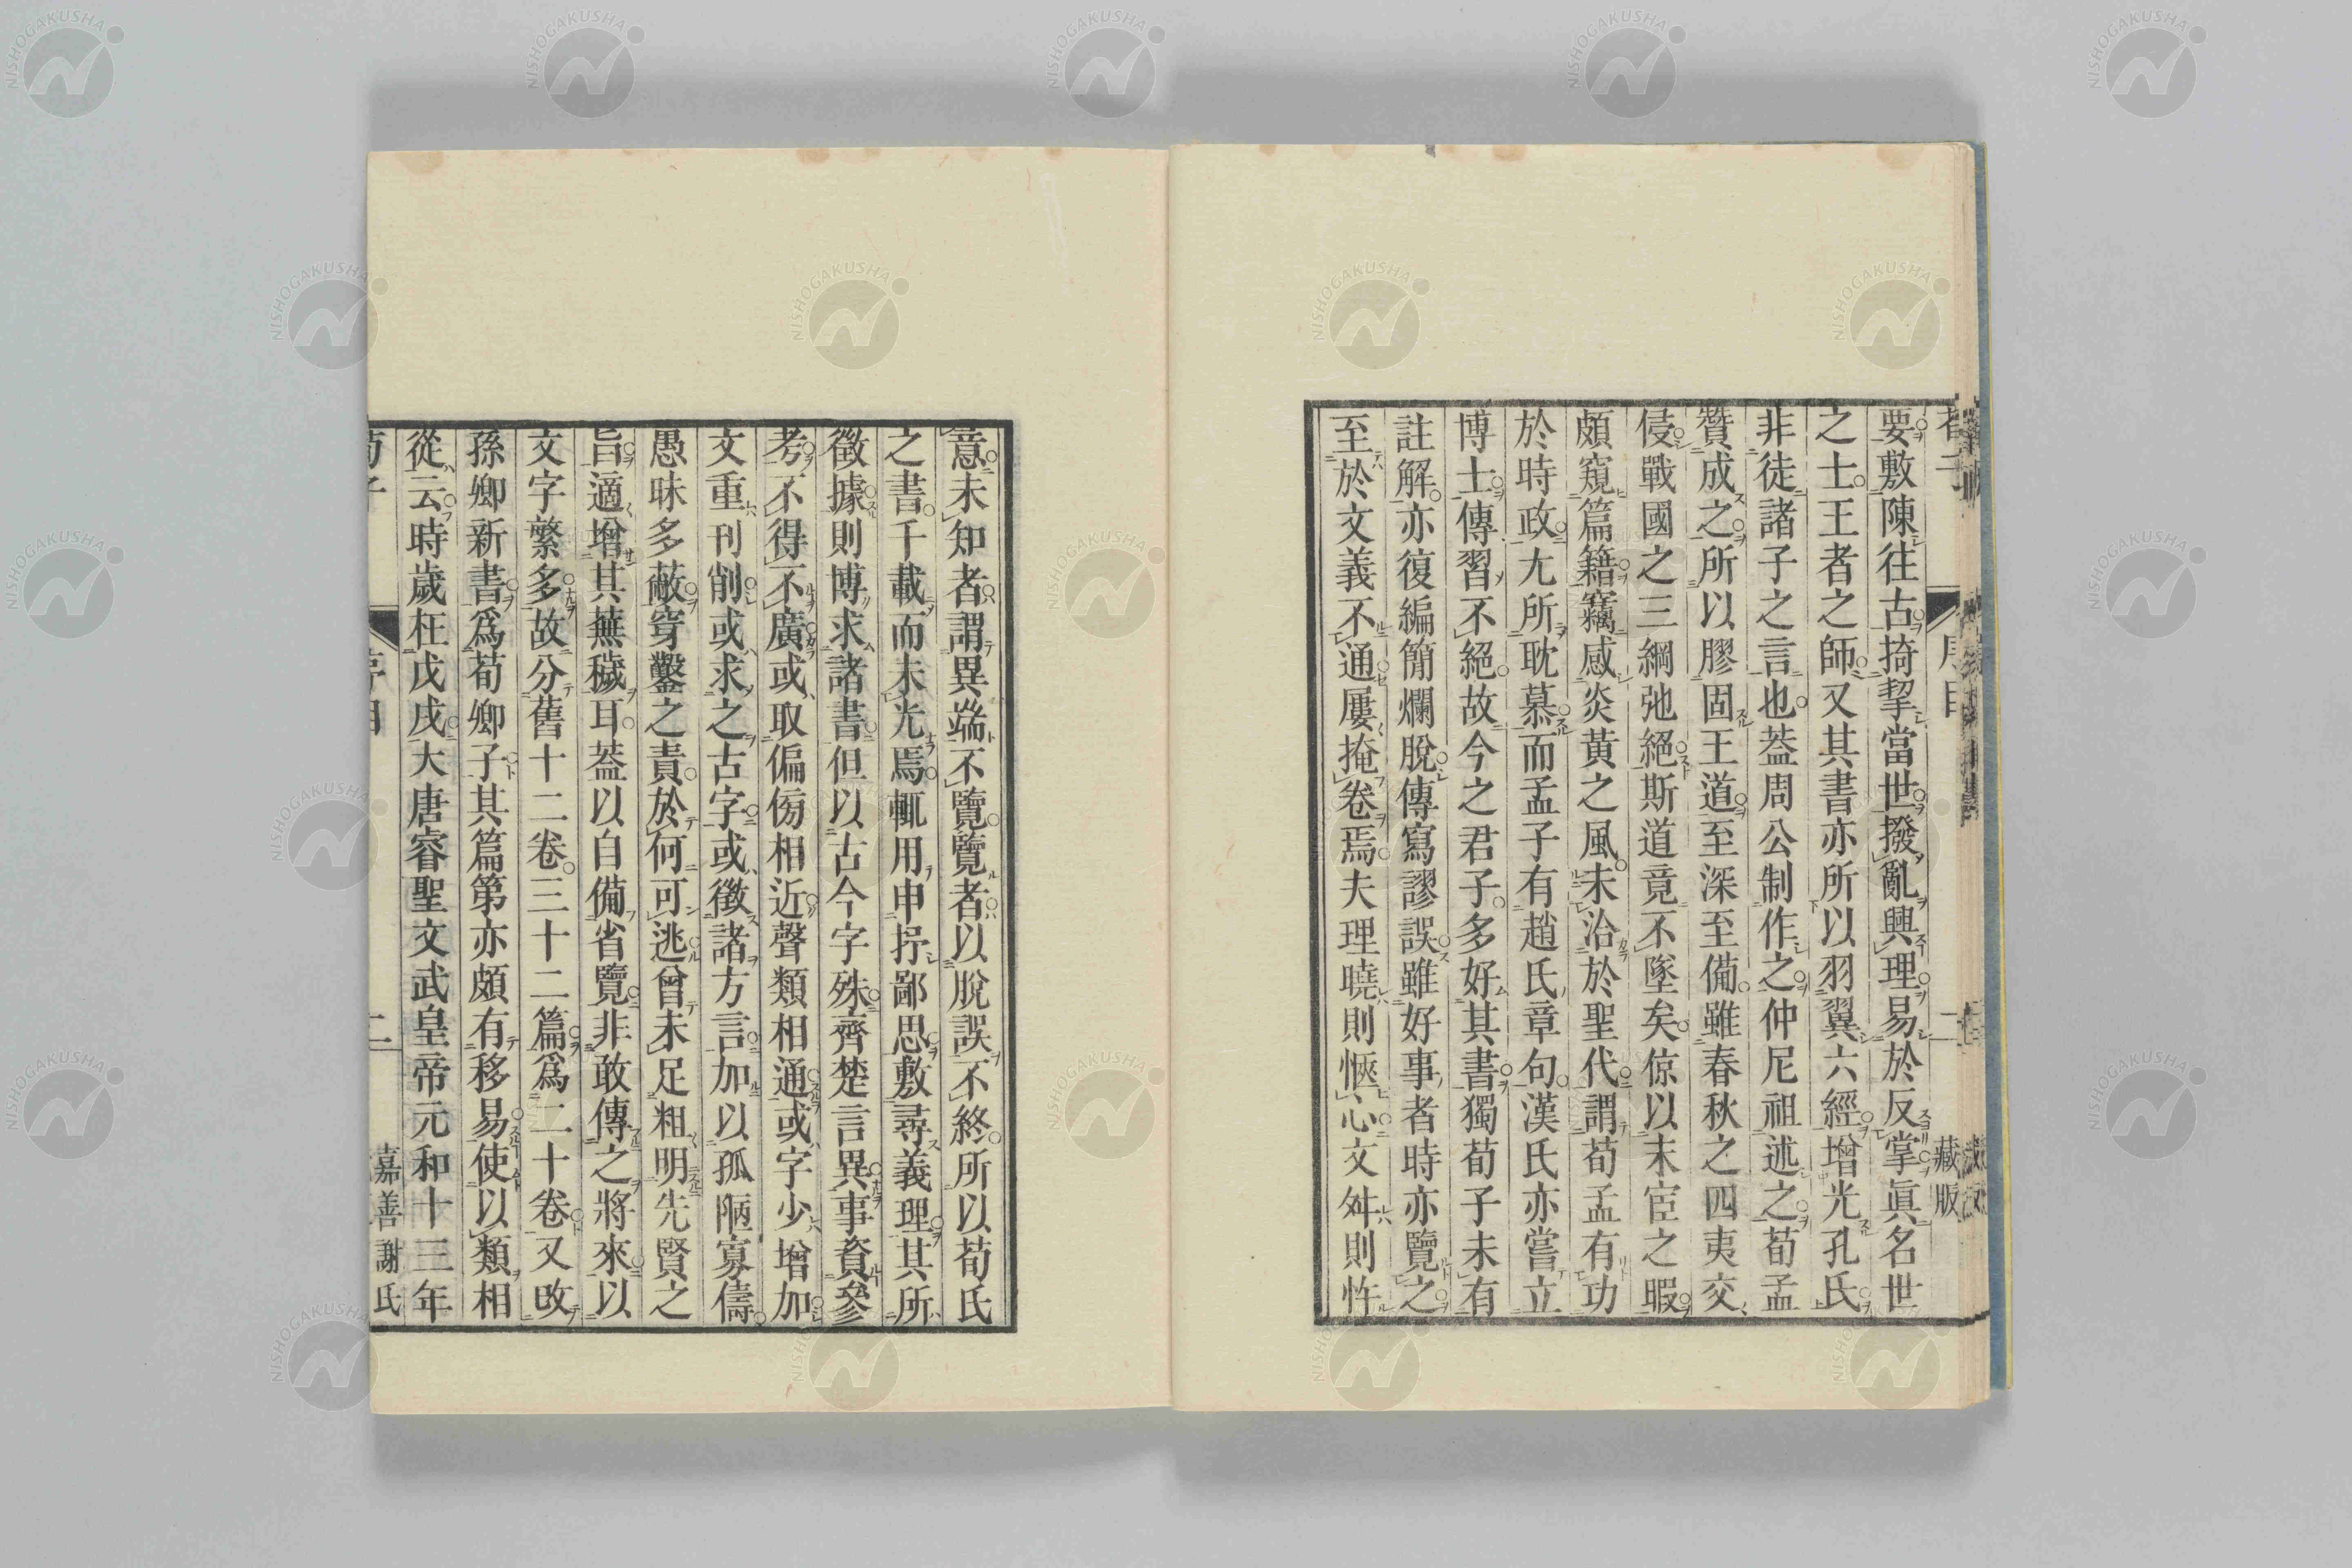 要敷陳往古掎挈當世撥亂興理易於反掌眞名世
之士王者之師又其書亦所以羽翼六經增光孔氏
非徒諸子之言也葢周公制作之仲尼祖述之荀孟
贊成之所以膠固王道至深至備雖春秋之四夷交
侵戰國之三綱弛絕斯道竟不墜矣倞以末宦之暇
頗窺篇籍竊感炎黃之風未洽於聖代謂荀孟有功
於時政尤所耽慕而孟子有趙氏章句漢氏亦嘗立
博士傳習不絕故今之君子多好其書獨荀子未有
註解亦復編簡爛脫傳寫謬誤雖好事者時亦覽之
至於文義不通屢掩卷焉夫理曉則愜心文舛則忤
藏版
意未知者謂異端不覽覽者以脫誤不終所以荀氏
之書千載而未光焉輒用申抒鄙思敷尋義理其所
徵據則博求諸書但以古今字殊齊楚言異事資參
考不得不廣或取偏傍相近聲類相通或字少增加
文重刊削或求之古字或徵諸方言加以孤陋寡儔
愚昧多蔽穿鑿之責於何可逃曾未足粗明先賢之
旨適增其蕪穢耳葢以自備省覽非敢傳之將來以
文字繁多故分舊十二卷三十二篇爲二十卷又改
孫卿新書爲荀卿子其篇第亦頗有移易使以類相
從云時歲在戊戌大唐睿聖文武皇帝元和十三年
荀子
序目
二
嘉善謝氏
NISHOGAKUSHA